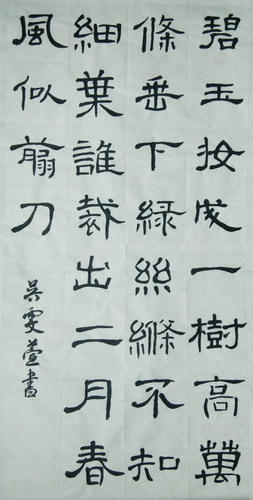 碧玉妝成一樹高萬
條垂下緑絲縧不知
細葉誰裁出二月春
風似翦刀
吴雯萱書